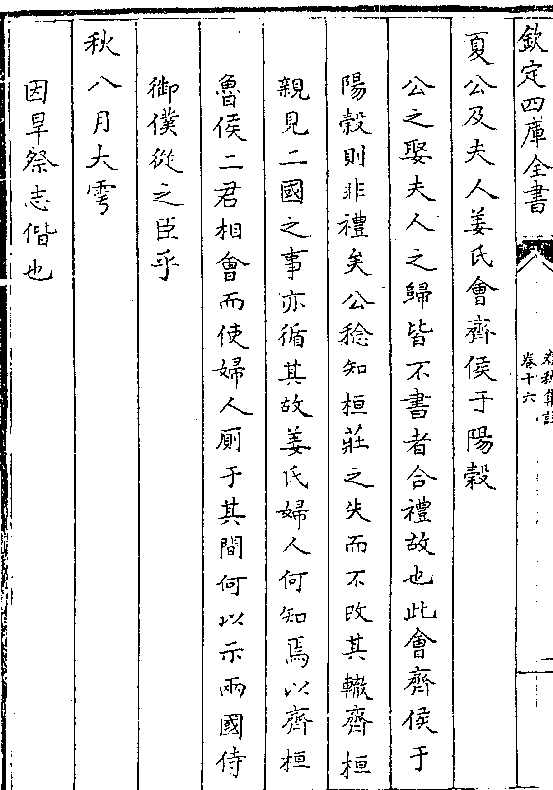 欽定四庫全書
春秋集註
卷十六
夏公及夫人姜氏會齊侯于陽穀
公之娶夫人之歸皆不書者合禮故也此會齊侯于
陽穀則非禮矣公稔知桓莊之失而不改其轍齊桓
親見二國之事亦循其故姜氏婦人何知焉以齊桓
魯侯二君相會而使婦人厠于其間何以示兩國侍
御僕從之臣乎
秋八月大雩
因旱祭志僭也